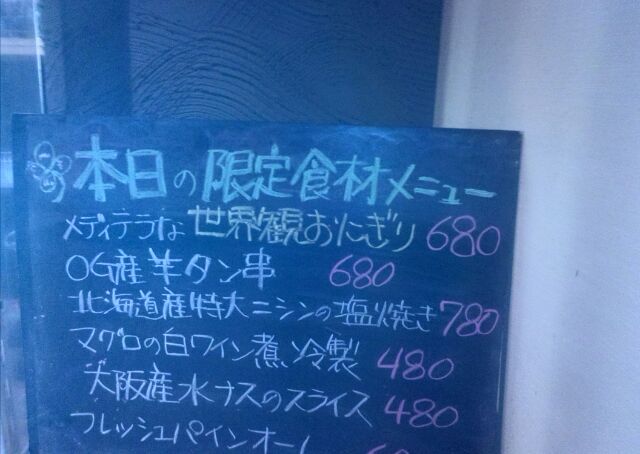 本日の限定食材メニュー
メディテラな世界観おにぎり 680
OG産羊タン串 680
北海道産特大ニシンの塩焼き 780
マグロの白ワイン煮冷製 480
大阪産水ナスのスライス 480
フレッシュパインオー